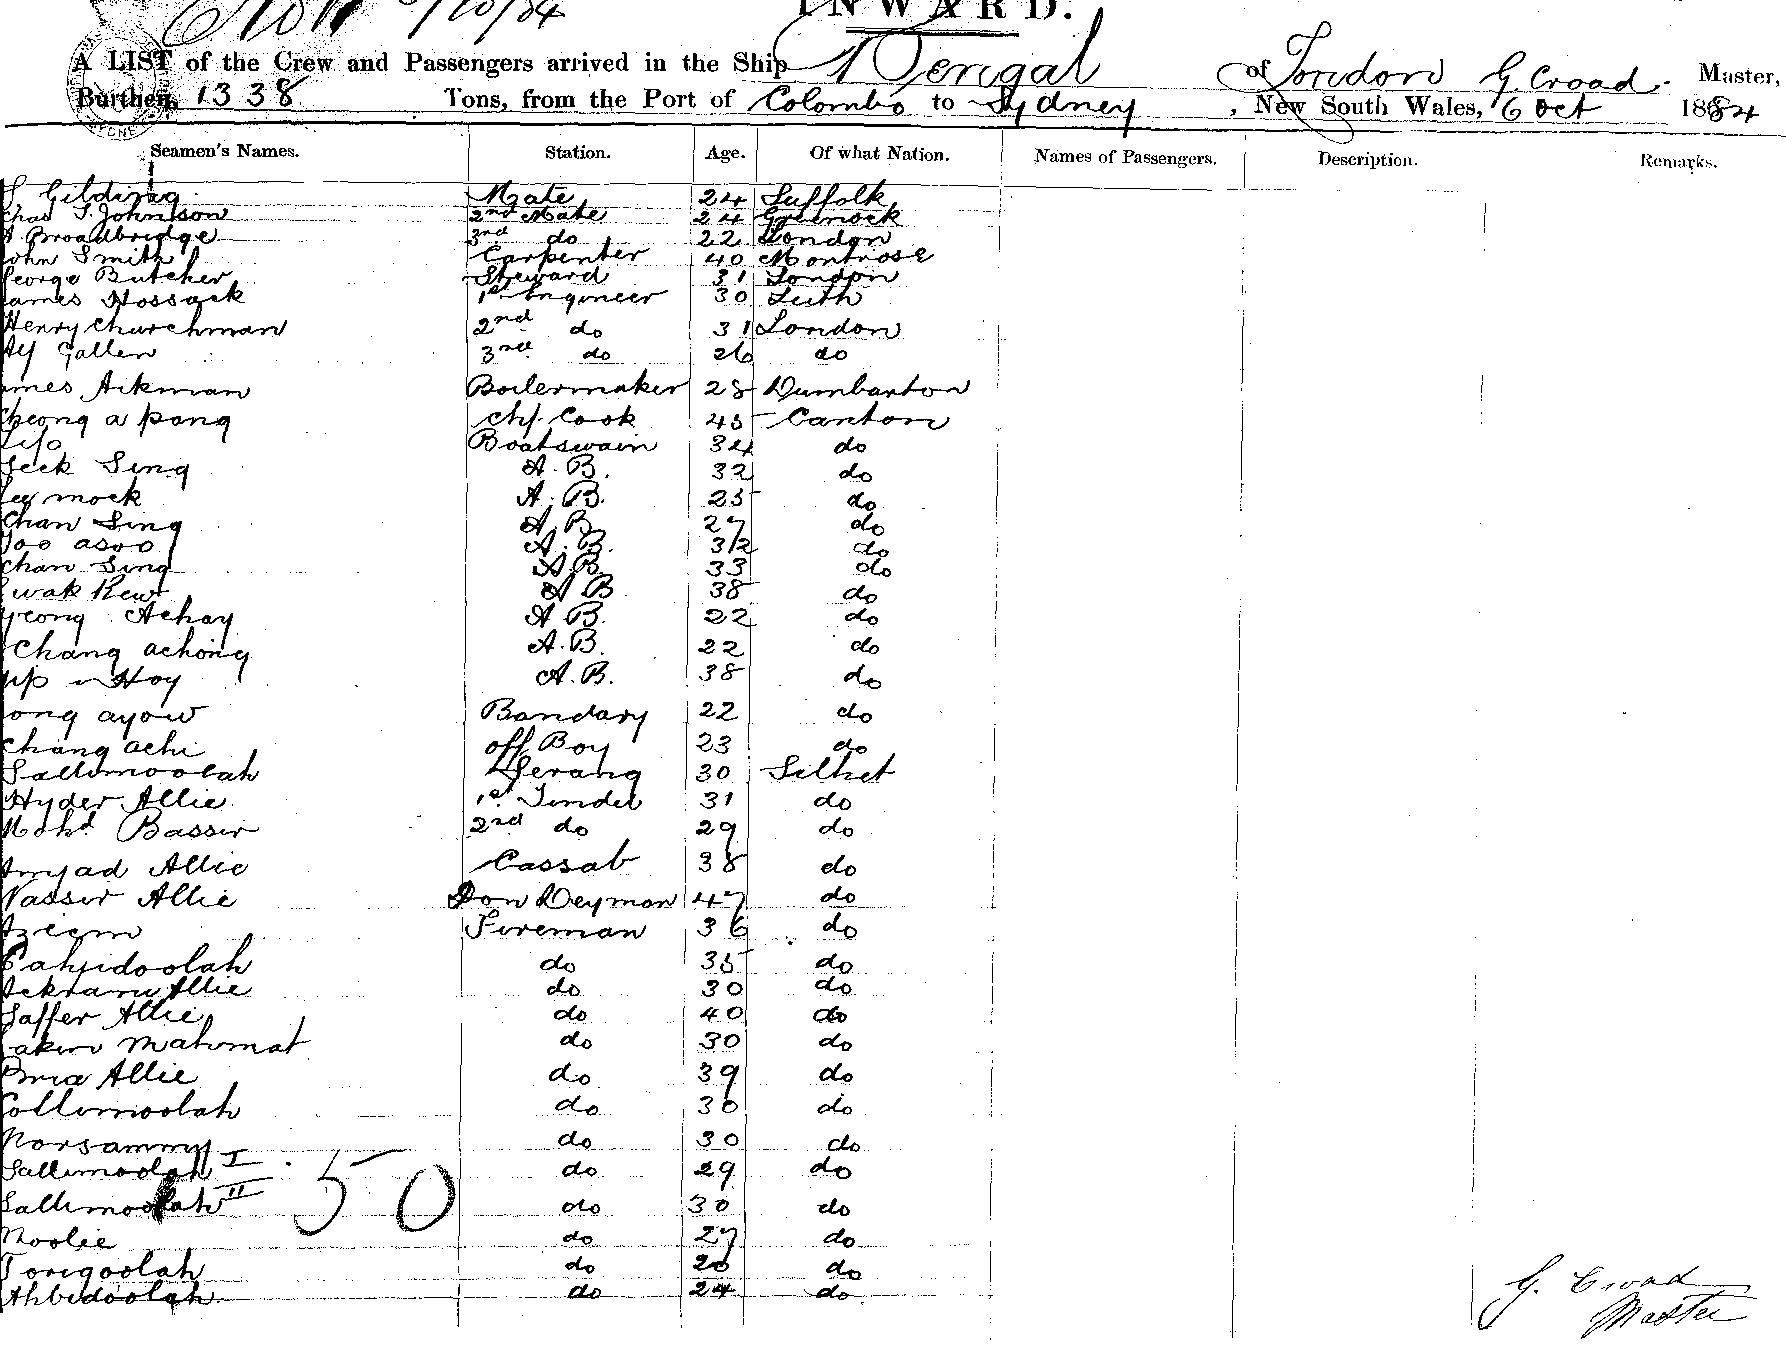 INWARD.
A LIST of the Crew and Passengers arrived in the Ship Bengal of London G. Croad. Master,
Burthen, 1338 Tons, from the Port of Colombo to Sydney, New South Wales, 6 Oct 1884
Seamen's Names. Station. Age. Of what Nation. Names of Passengers. Description. Remarks.
Gilding Mate 24 Suffolk
Chas S. Johnson 2nd Mate 24 Greenock
Broadbridge 3rd do 22 London
John Smith Carpenter 40 Montrose
George Butcher Steward 31 London
James Hossack 1st Engineer 30 Leith
Henry Churchman 2nd do 31 London
Alf Gallen 3rd do 26 do
ames Aikman Boilermaker 28 Dumbarton
Cheong a pong chf. Cook 45 Canton
Boatswain 34 do
Seek Sing A.B. 32 do
mock A.B. 25 do
Chan Sing A.B. 27 do
asoo A.B. 32 do
Chan Sing A.B. 33 do
wak Kew A B 38 do
yeong Achay A B. 22 do
Chang achong A.B. 22 do
Hoy A.B. 38 do
ong ayow Bandary 22 do
Chang achi off Boy 23 do
Sallimoolah Serang 30 Silhet
Hyder Allie 1st Tindel 31 do
Mohd Bassir 2nd do 29 do
Amjad Allie Cassab 38 do
Nassir Allie Don Keyman 47 do
Azeem Fireman 36 do
do 35 do
Ackram Allie do 30 do
Saffer Allie do 40 do
akim Mahomat do 30 do
Allie do 39 do
Collimoolah do 30 do
Norsammy do 30 do
Sallimoolah I do 29 do
Sallimoolah II do 30 do
50
Moolie do 27 do
Torigoolah do 20 do
Ahbidoolah do 24 do
G. Croad
Master